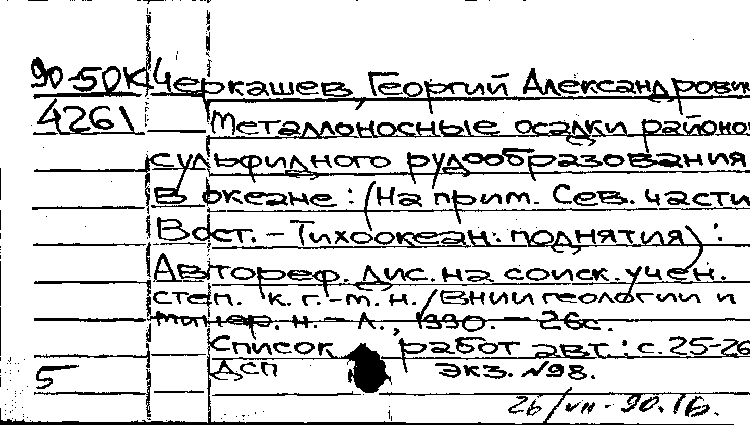 90-50К Черкашев, Георгий Александрович
4261 Металлоносные осадки районов
сульфидного рудообразования
в океане : (На прим. Сев. части
Вост.-Тихоокеан. поднятия) :
Автореф. дис. на соиск. учен.
степ. к. г.-м. н. / ВНИИ геологии и
минер. н. - Л., 1990. - 26с.
Список работ авт.: с. 25-26
5 ДСП экз. №98.
26/VII-90.